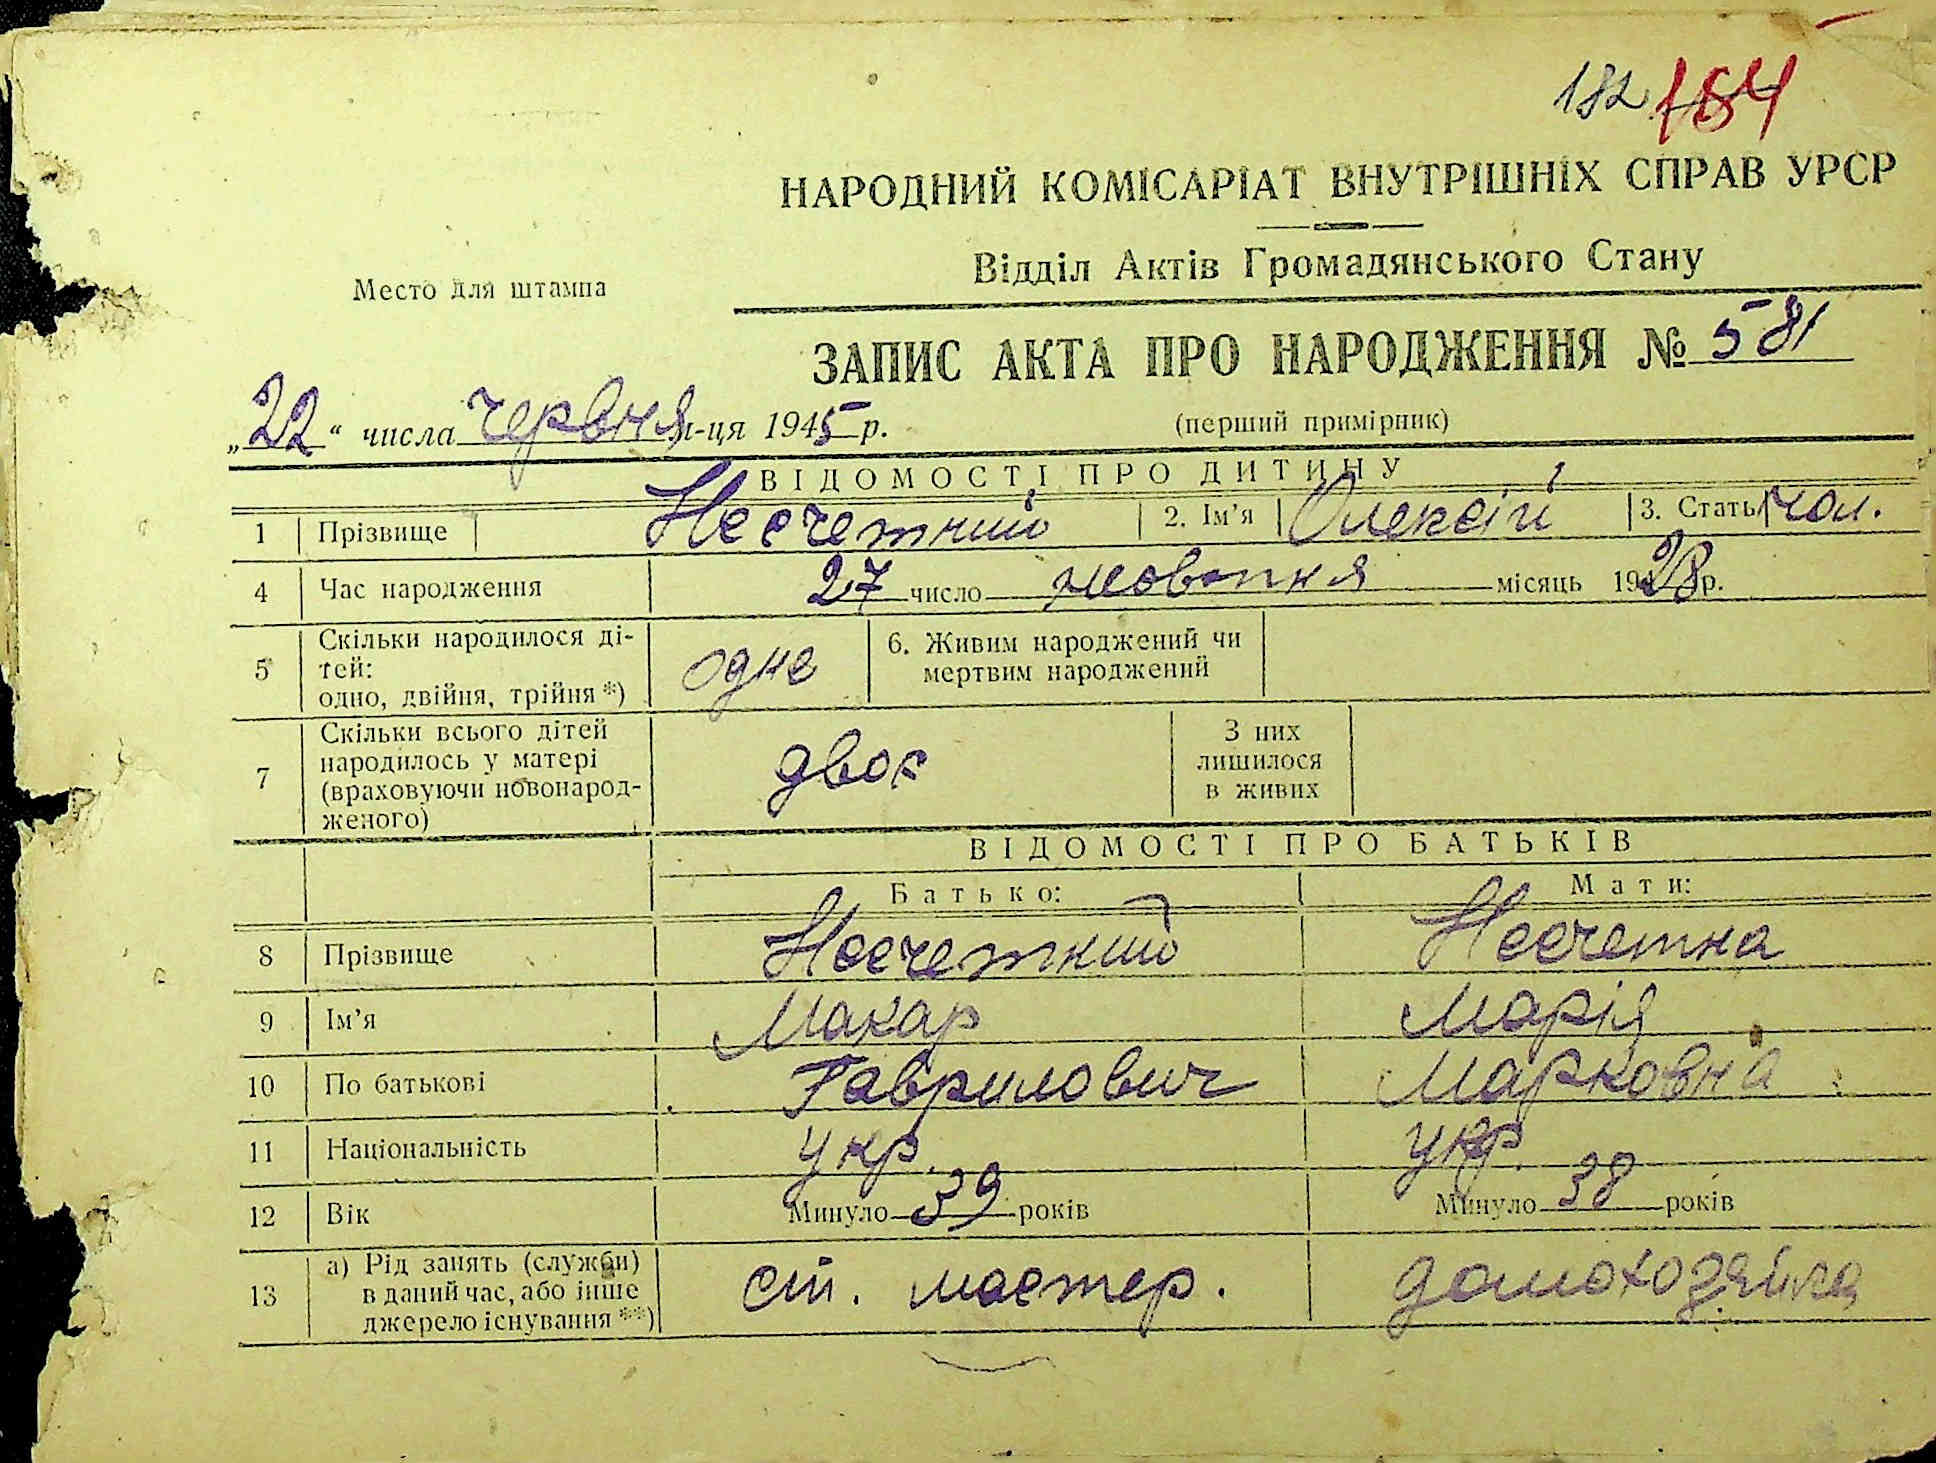 182 184
НАРОДНИЙ КОМІСАРІАТ ВНУТРІШНІХ СПРАВ УРСР
Відділ Актів Громадянського Стану
Место для штампа
ЗАПИС АКТА ПРО НАРОДЖЕННЯ № 581
„22“ числа червня м-ця 1945 р.
(перший примірник)
ВІДОМОСТІ ПРО ДИТИНУ
1 Прізвище Несчетний 2. Ім’я Олексій 3. Стать чол.
4 Час народження 27 число жовтня місяць 1928 р.
5 Скільки народилося ді-
тей:
одно, двійня, трійня *) одне
6. Живим народжений чи
мертвим народжений
7 Скільки всього дітей
народилось у матері
(враховуючи новонарод-
женого) двоє
З них
лишилося
в живих
ВІДОМОСТІ ПРО БАТЬКІВ
Батько: Мати:
8 Прізвище Несчетний Несчетна
9 Ім’я Макар Марія
10 По батькові Гаврилович Марковна
11 Національність укр. укр.
12 Вік Минуло 39 років Минуло 38 років
13 а) Рід занять (служби)
в даний час, або інше
джерело існування **) ст. мастер. домохозяйка